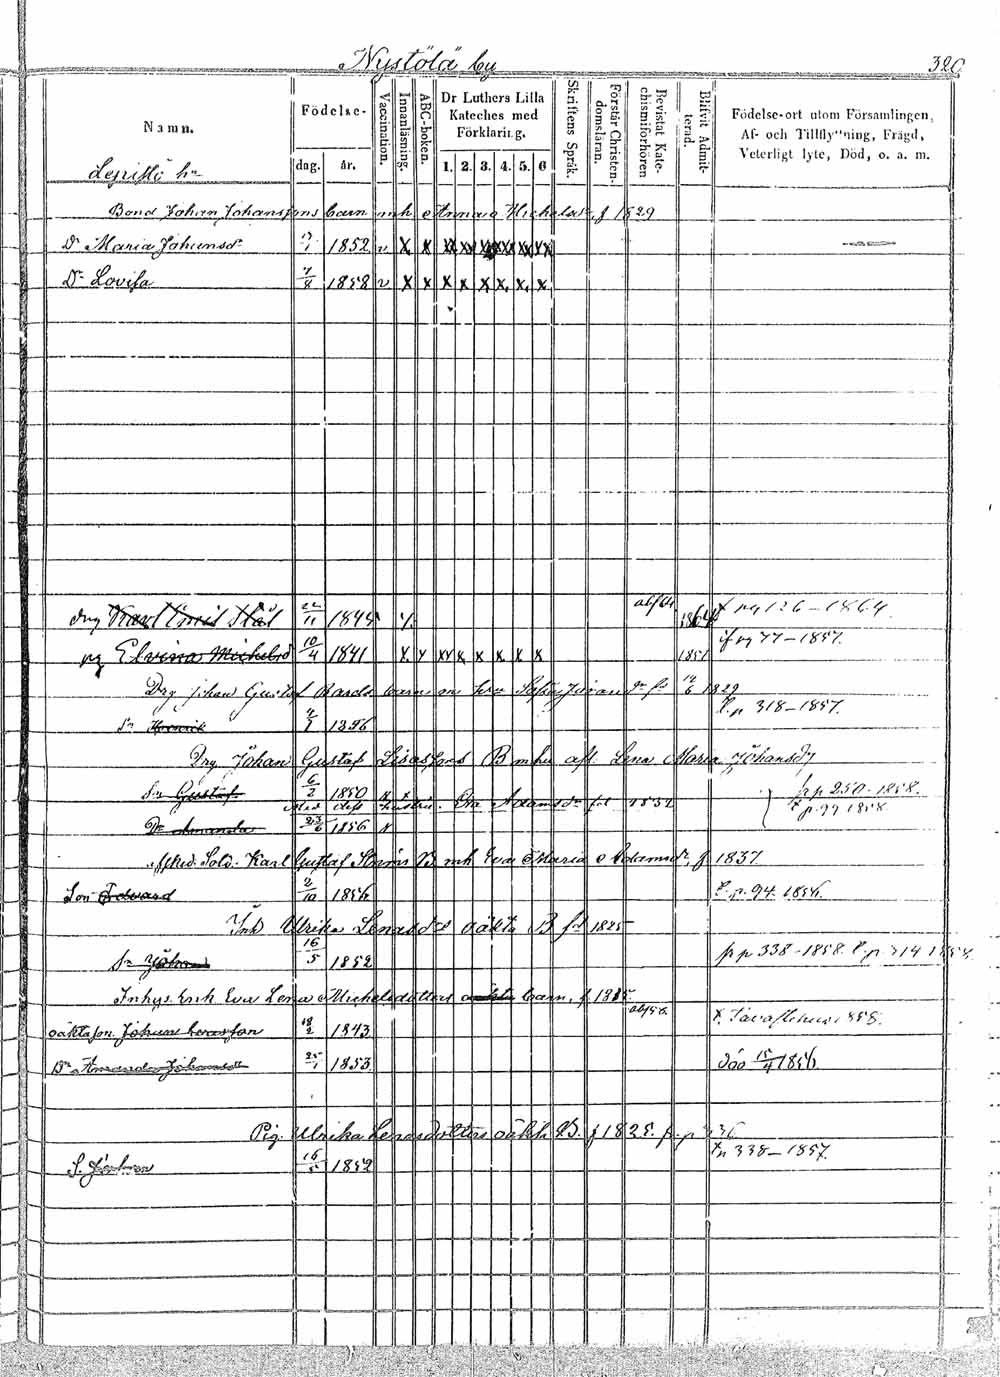 Nystölä by
320
Namn.
Födelse-
dag. år.
Vaccination.
Innanläsning.
ABC-boken.
Dr Luthers Lilla
Kateches med
Förklaring.
1. 2. 3. 4. 5. 6
Skriftens Språk.
Förstår Christen-
domsläran.
Bevistat Kate-
chismiförhören
Blifvit Admit-
terad.
Födelse-ort utom Församlingen,
Af- och Tillflyttning, Frägd,
Veterligt lyte, Död, o. a. m.
Lepistö hn
Bond Johan Johanssons barn mh Anna Michelsdr, f 1829
Dr Maria Johansdr 1852 v X X XX XX XX XX XX XX
Dr Lovisa 7/8 1858 v X X X X X X X X
drg Karl Emil Stål 22/11 1844 1864 pg 126 - 1864
pg Elvina Michelsd 10/4 1841 X XX X X X X X 1857 pg 77 - 1857.
Drg Johan Gustaf barn m hu 1829
Sn Henrik 1856 p 318 - 1857.
Drg Johan Gustaf Lisasfors B mhu afl. Lena Maria Johansdr
Sn Gustaf 6/2 1850 p 250 - 1858.
Med dess hustru. Eva Adamsdr fd 1832 p. 99 1858
Dr Amanda 23/6 1856
Afsked. Sold. Karl Gustaf Ströms B mh Eva Maria Adamsdr, f 1837.
Son Edvard 2/10 1856 p. 94. 1856.
Inh Ulrika Lenasdrs oäkta B fd 1825
Sn Johan 16/5 1852 p 338 - 1858. p 314 1858.
Inhys. Enk Eva Lena Michelsdotters oäkta barn, f. 1815.
oäkta son Johan 18/2 1843 Tavastehus 1858.
Dr Amanda Johansdr 25/1 1853 döo 15/4 1856
Pig. Ulrika Lenasdotters oäkta B. f 1825. p. 336
S. Johan 16/5 1852 p 338 - 1857.